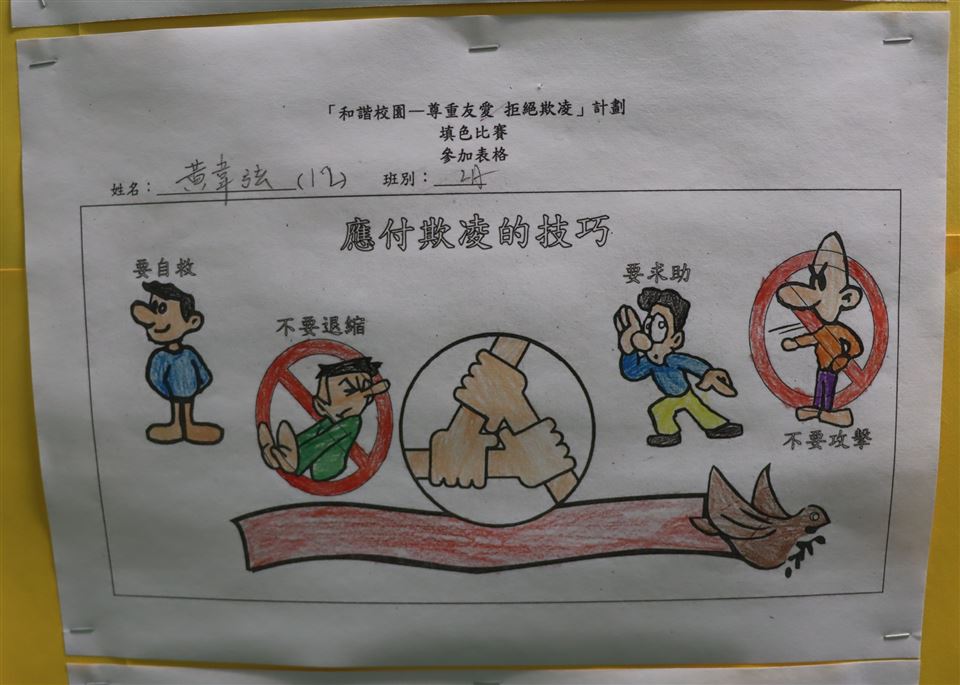 「和諧校園—尊重友愛 拒絕欺凌」計劃
填色比賽
參加表格
姓名：黃韋弦(12) 班別：2A
應付欺凌的技巧
要自救
不要退縮
要求助
不要攻擊